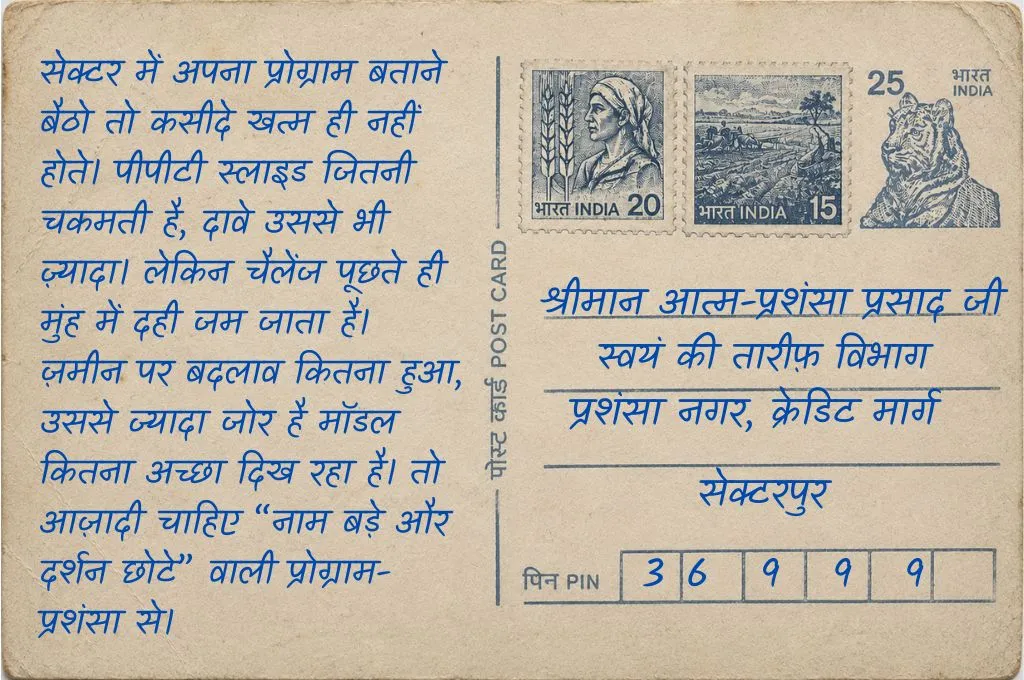 सेक्टर में अपना प्रोग्राम बताने
बैठो तो कसीदे खत्म ही नहीं
होते। पीपीटी स्लाइड जितनी
चकमती है, दावे उससे भी
ज़्यादा। लेकिन चैलेंज पूछते ही
मुंह में दही जम जाता है।
ज़मीन पर बदलाव कितना हुआ,
उससे ज्यादा जोर है मॉडल
कितना अच्छा दिख रहा है। तो
आज़ादी चाहिए “नाम बड़े और
दर्शन छोटे” वाली प्रोग्राम-
प्रशंसा से।
पोस्ट कार्ड POST CARD
भारत INDIA 20
भारत INDIA 15
25 भारत
INDIA
श्रीमान आत्म-प्रशंसा प्रसाद जी
स्वयं की तारीफ़ विभाग
प्रशंसा नगर, क्रेडिट मार्ग
सेक्टरपुर
पिन PIN 3 6 9 9 9